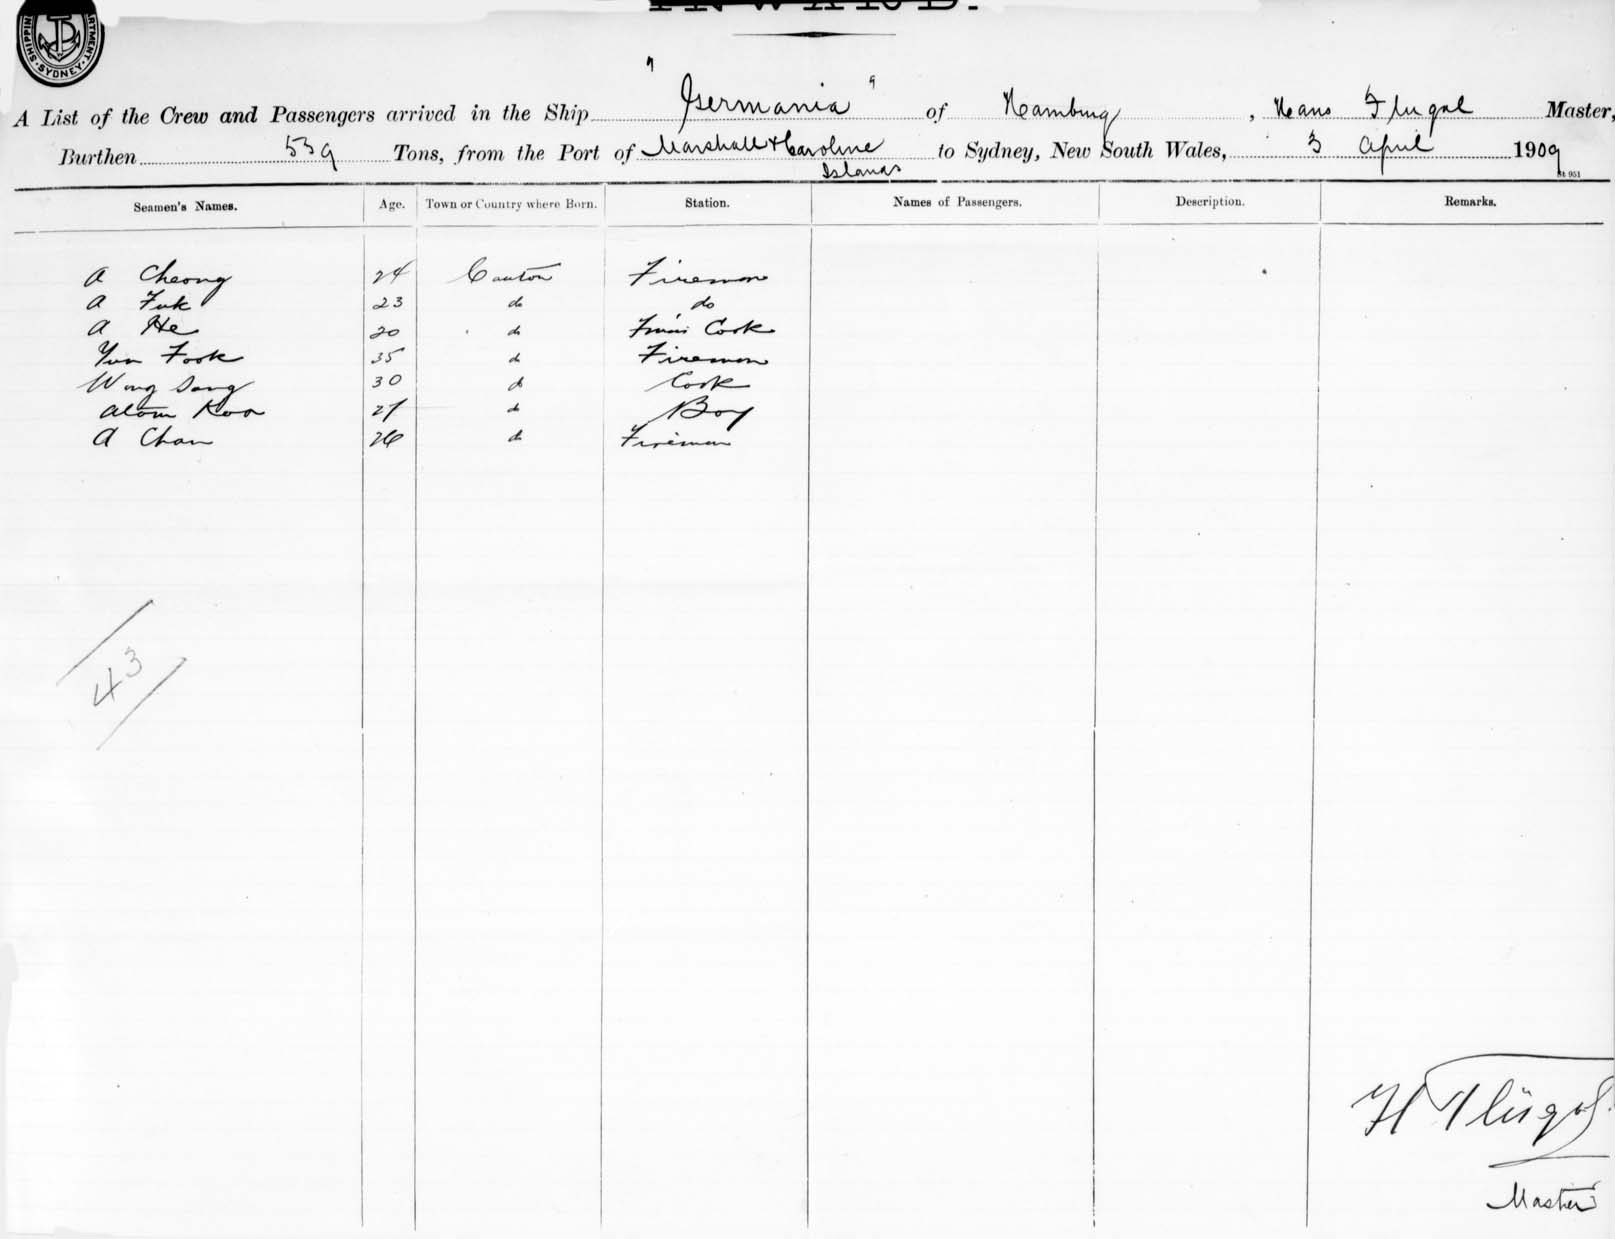 INWARD.
SHIPPIN ARTMENT. SYDNEY.
A List of the Crew and Passengers arrived in the Ship "Germania" of Hamburg, Hans Flugal Master,
Burthen 539 Tons, from the Port of Marshall & Caroline Islands to Sydney, New South Wales, 3 April 1909
St 951
Seamen's Names. Age. Town or Country where Born. Station. Names of Passengers. Description. Remarks.
A Cheong 24 Canton Fireman
A Fuk 23 do do
A He 20 do Cook
Yun Fook 35 do Fireman
Wong Sang 30 do Cook
Koo 27 do Boy
A Chan 26 do Fireman
43
H Flügel
Master